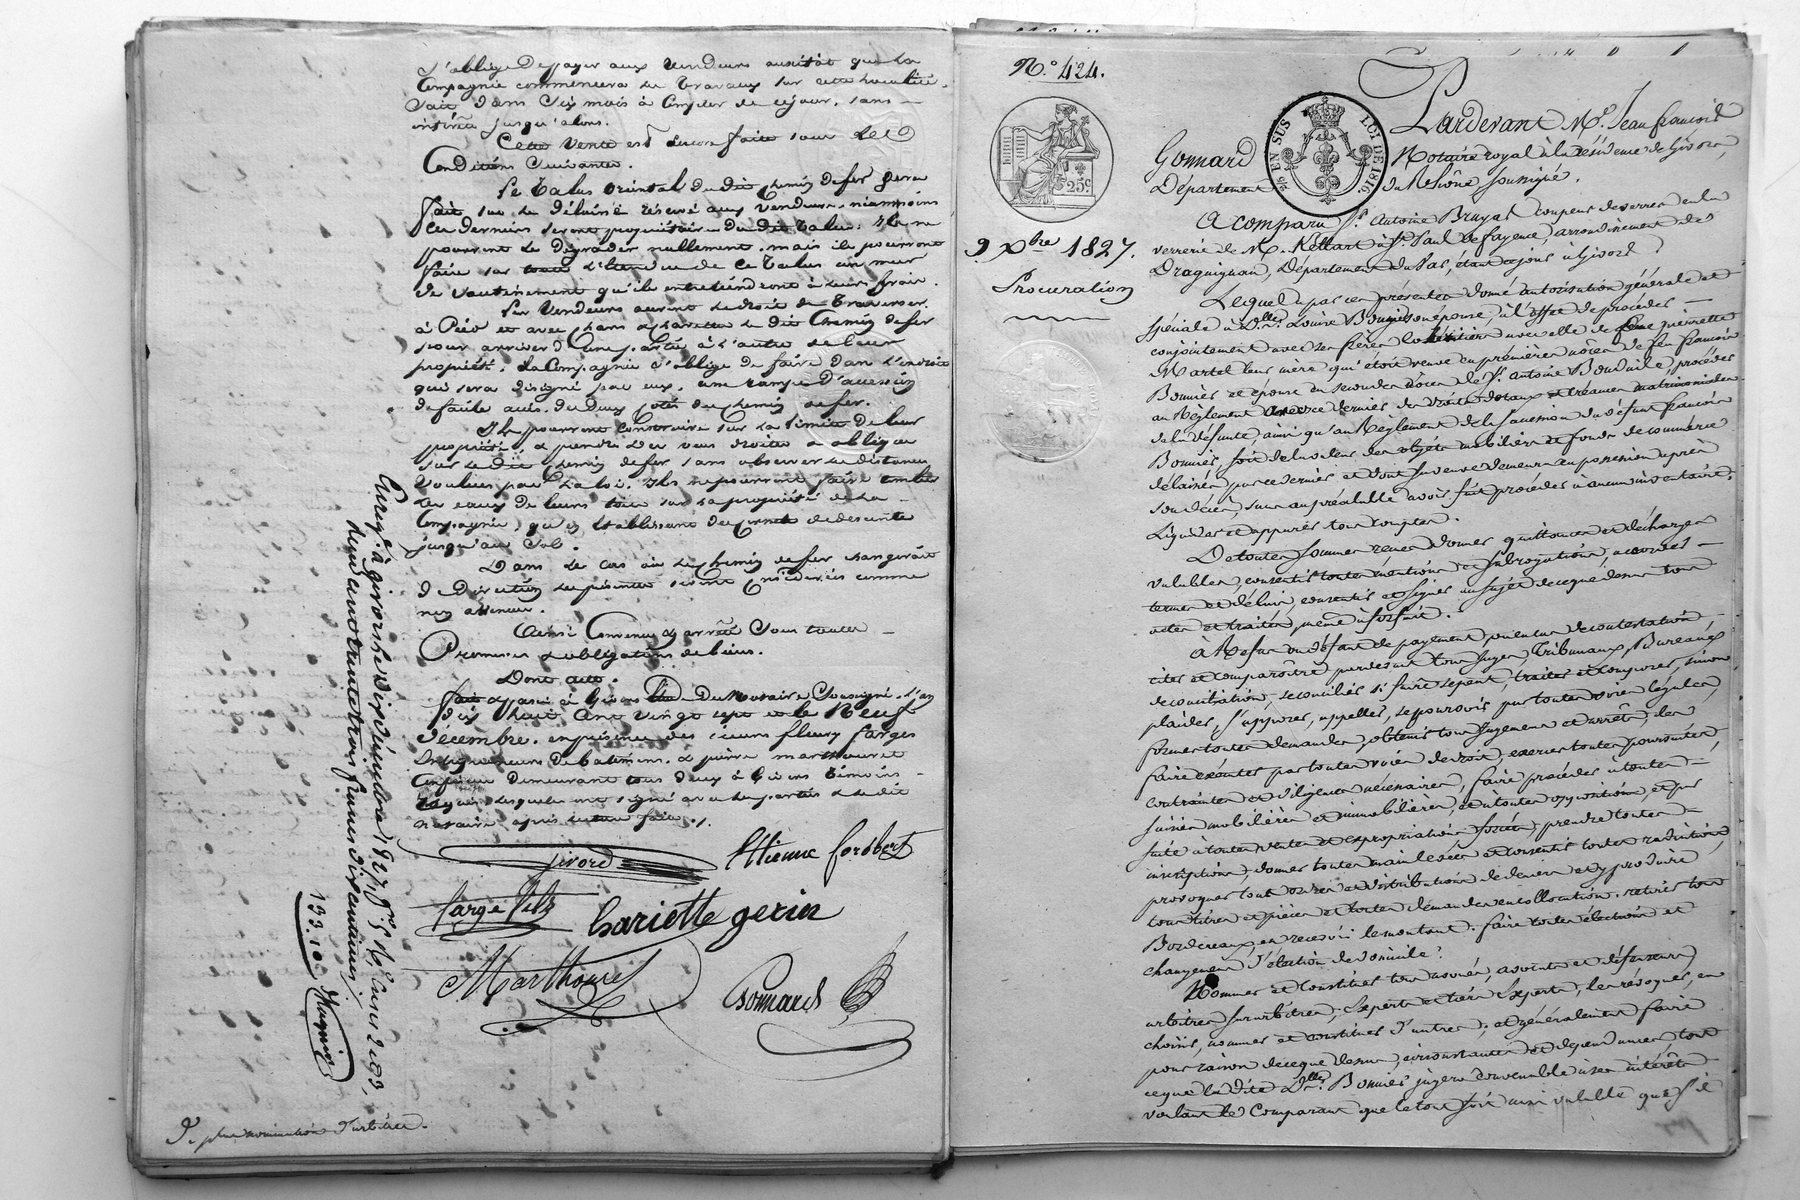 s'oblige de payer aux vendeurs aussitôt que la
Compagnie commencera ses travaux sur cette localité
soit dans six mois à compter de ce jour, sans
intérêts jusqu'alors.
Cette vente est encore faite sous les
Conditions Suivantes.
Le Talus oriental du dit chemin de fer sera
fait sur le délaissé réservé aux vendeurs, néanmoins
ces derniers seront propriétaires du dit talus. Ils ne
pourront le dégrader nullement, mais ils pourront
faire sur toute l'étendue de ce talus un mur
de soutènement qu'ils entretiendront à leurs frais.
Les vendeurs auront le droit de traverser
à Pied et avec chars & charettes le dit Chemin de fer
pour arriver d'une partie à l'autre de leur
propriété. La Compagnie s'oblige de faire dans l'endroit
qui sera désigné par eux, une rampe d'accession
de facile accès, des deux cotés du chemin de fer.
Ils pourront construire sur la limite de leur
propriété & prendre des vues droites & obliques
sur le dit chemin de fer sans observer les distances
voulues par la loi. Ils ne pourront faire tomber
les eaux de leurs toits sur la propriété de la
Compagnie, qu'en établissant des cornets de descente
jusqu'au sol.
Dans le cas où le chemin de fer changerait
de Direction les présentes seront considérées comme
non avenues.
Ainsi Convenu & arrêté Sous toutes
Promesses & obligations de biens.
Dont acte.
fait & passé à Givors Etude du Notaire Soussigné, l'an
dix huit cent vingt sept et le Neuf
décembre, en présence des sieurs fleury farges
de batimens, & pierre marthouret
demeurant tous deux à Givors témoins
requis lesquels ont signé avec les parties & le dit
notaire après lecture faite ./.
givord
Etienne forobert
farge fils
hariette gerin
Marthouret
Gonnard
Enreg. à givors le dix décembre 1827,
133.10
N.° 424.
25c
9 Xbre 1827.
Procuration
EN SUS LOI DE 1816.
Pardevant Me. Jean françois
Gonnard Notaire royal à la résidence de Givors
Département du Rhône soussigné.
A comparu Sr. Antoine Bruyas coupeur de verres en la
verrerie de M. à St. Paul de fayence, arrondisement de
Draguignan, Département du Var, étant ce jour à Givors.
Lequel a par ces présentes donné autorisation générale et
spéciale à Dlle. Louise Bonnier son épouse, à l'effet de procéder
conjointement avec ses frères
Martel leur mère qu'étoit veuve en premières nôces de feu françois
Bonnier et épouse en secondes nôces de Sr. antoine procéder
au Règlement avec ce dernier des droits dotaux et créances matrimoniales
de la défunte, ainsi qu'au Règlement de la succession du défunt françois
Bonnier, soit de la valeur des objets mobiliers et fonds de commerce
délaissés par ce dernier et dont sa veuve demeura en possession après
son décès, sans au préalable avoir fait procéder à aucun inventaire,
Liquider et appurer tous comptes.
De toutes sommes reçues donner quittances et décharges
valables, consentir toutes mentions et subrogations, accorder
termes et délais, consentir et signer au sujet de ce que dessus tous
actes et traités, même à forfait.
à Refus ou défaut de payment ou en cas de contestation
citer et comparoître pardevant tous Juges, Tribunaux, Bureaux
de conciliation, se concilier si faire se peut, traiter et composer, sinon
plaider, s'opposer, appeller, se pourvoir par toutes voies légales,
former toutes demandes, obtenir tous Jugemens et arrêts, les
faire exécuter par toutes voies de droit, exercer toutes poursuites,
contraintes et diligences nécessaires, faire procéder à toutes
saisies mobilières et immobilières, et à toutes oppositions, et par
suite à toutes ventes et expropriations forcées, prendre toutes
inscriptions, donner toutes mainlevées et consentir toutes radiations,
provoquer tout ordre et distribution de deniers et y produire
tous titres et pièces et toutes demandes en collocation, retirer tous
Bordereaux, en recevoir le montant. faire toutes élections et
changement d'élection de domicile.
Nommer et constituer tous avoués, avocats et défenseurs,
arbitres, surarbitres, Experts et tiers Experts, les révoquer, en
choisir, nommer et constituer d'autres; et généralement faire
pour raison de ce que dessus, circonstances et dépendances, tout
ce que la dite Dlle. Bonnier jugera convenable à ses intérêts
voulant le Comparant que le tout soit aussi valable que s'il